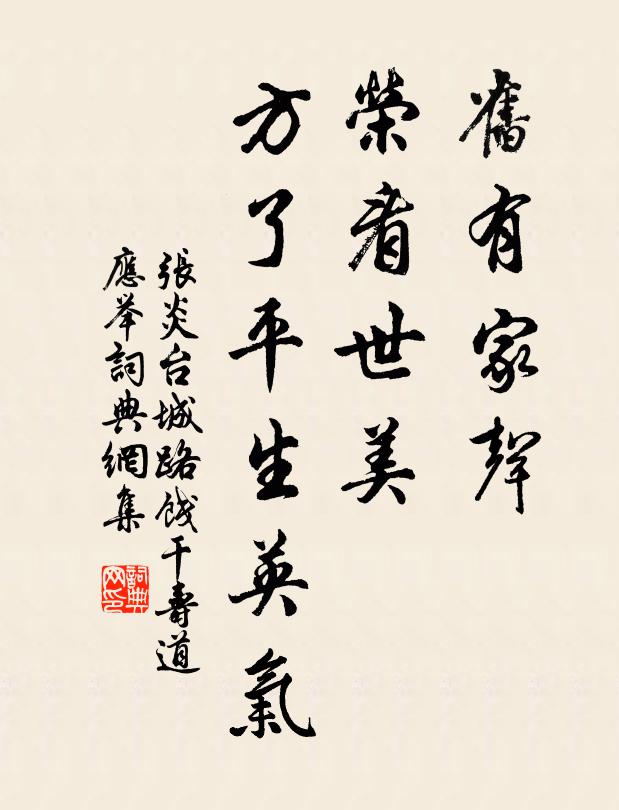 舊有家聲
榮看世美
方了平生英氣
張炎台城路餞干壽道
應举詞典網集
詞典網印